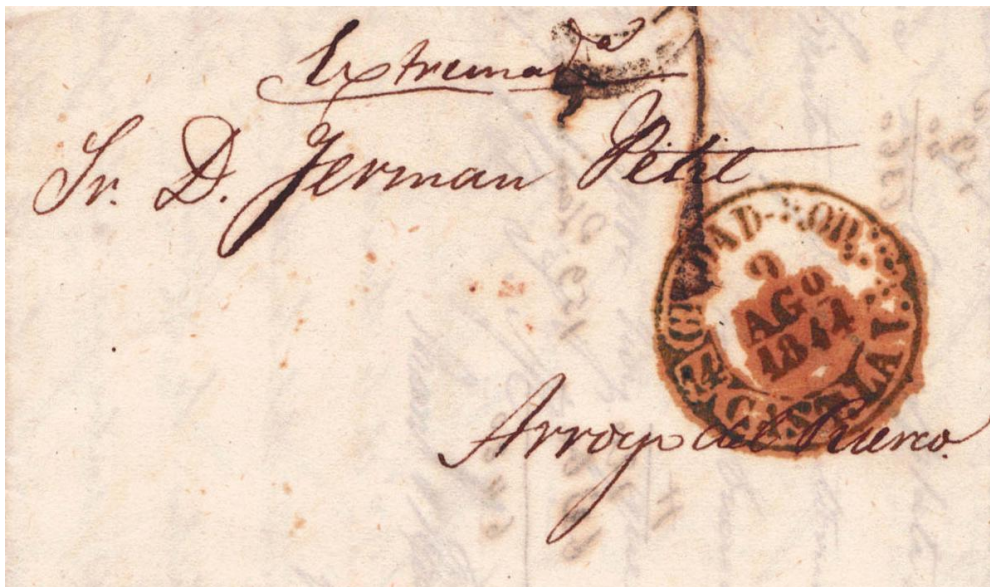 Extremad.a
Sr. D. Jerman Petit
CIUDAD-ROD.
9
AGO
1844
CAST.LA V.
Arroyo del Puerco.